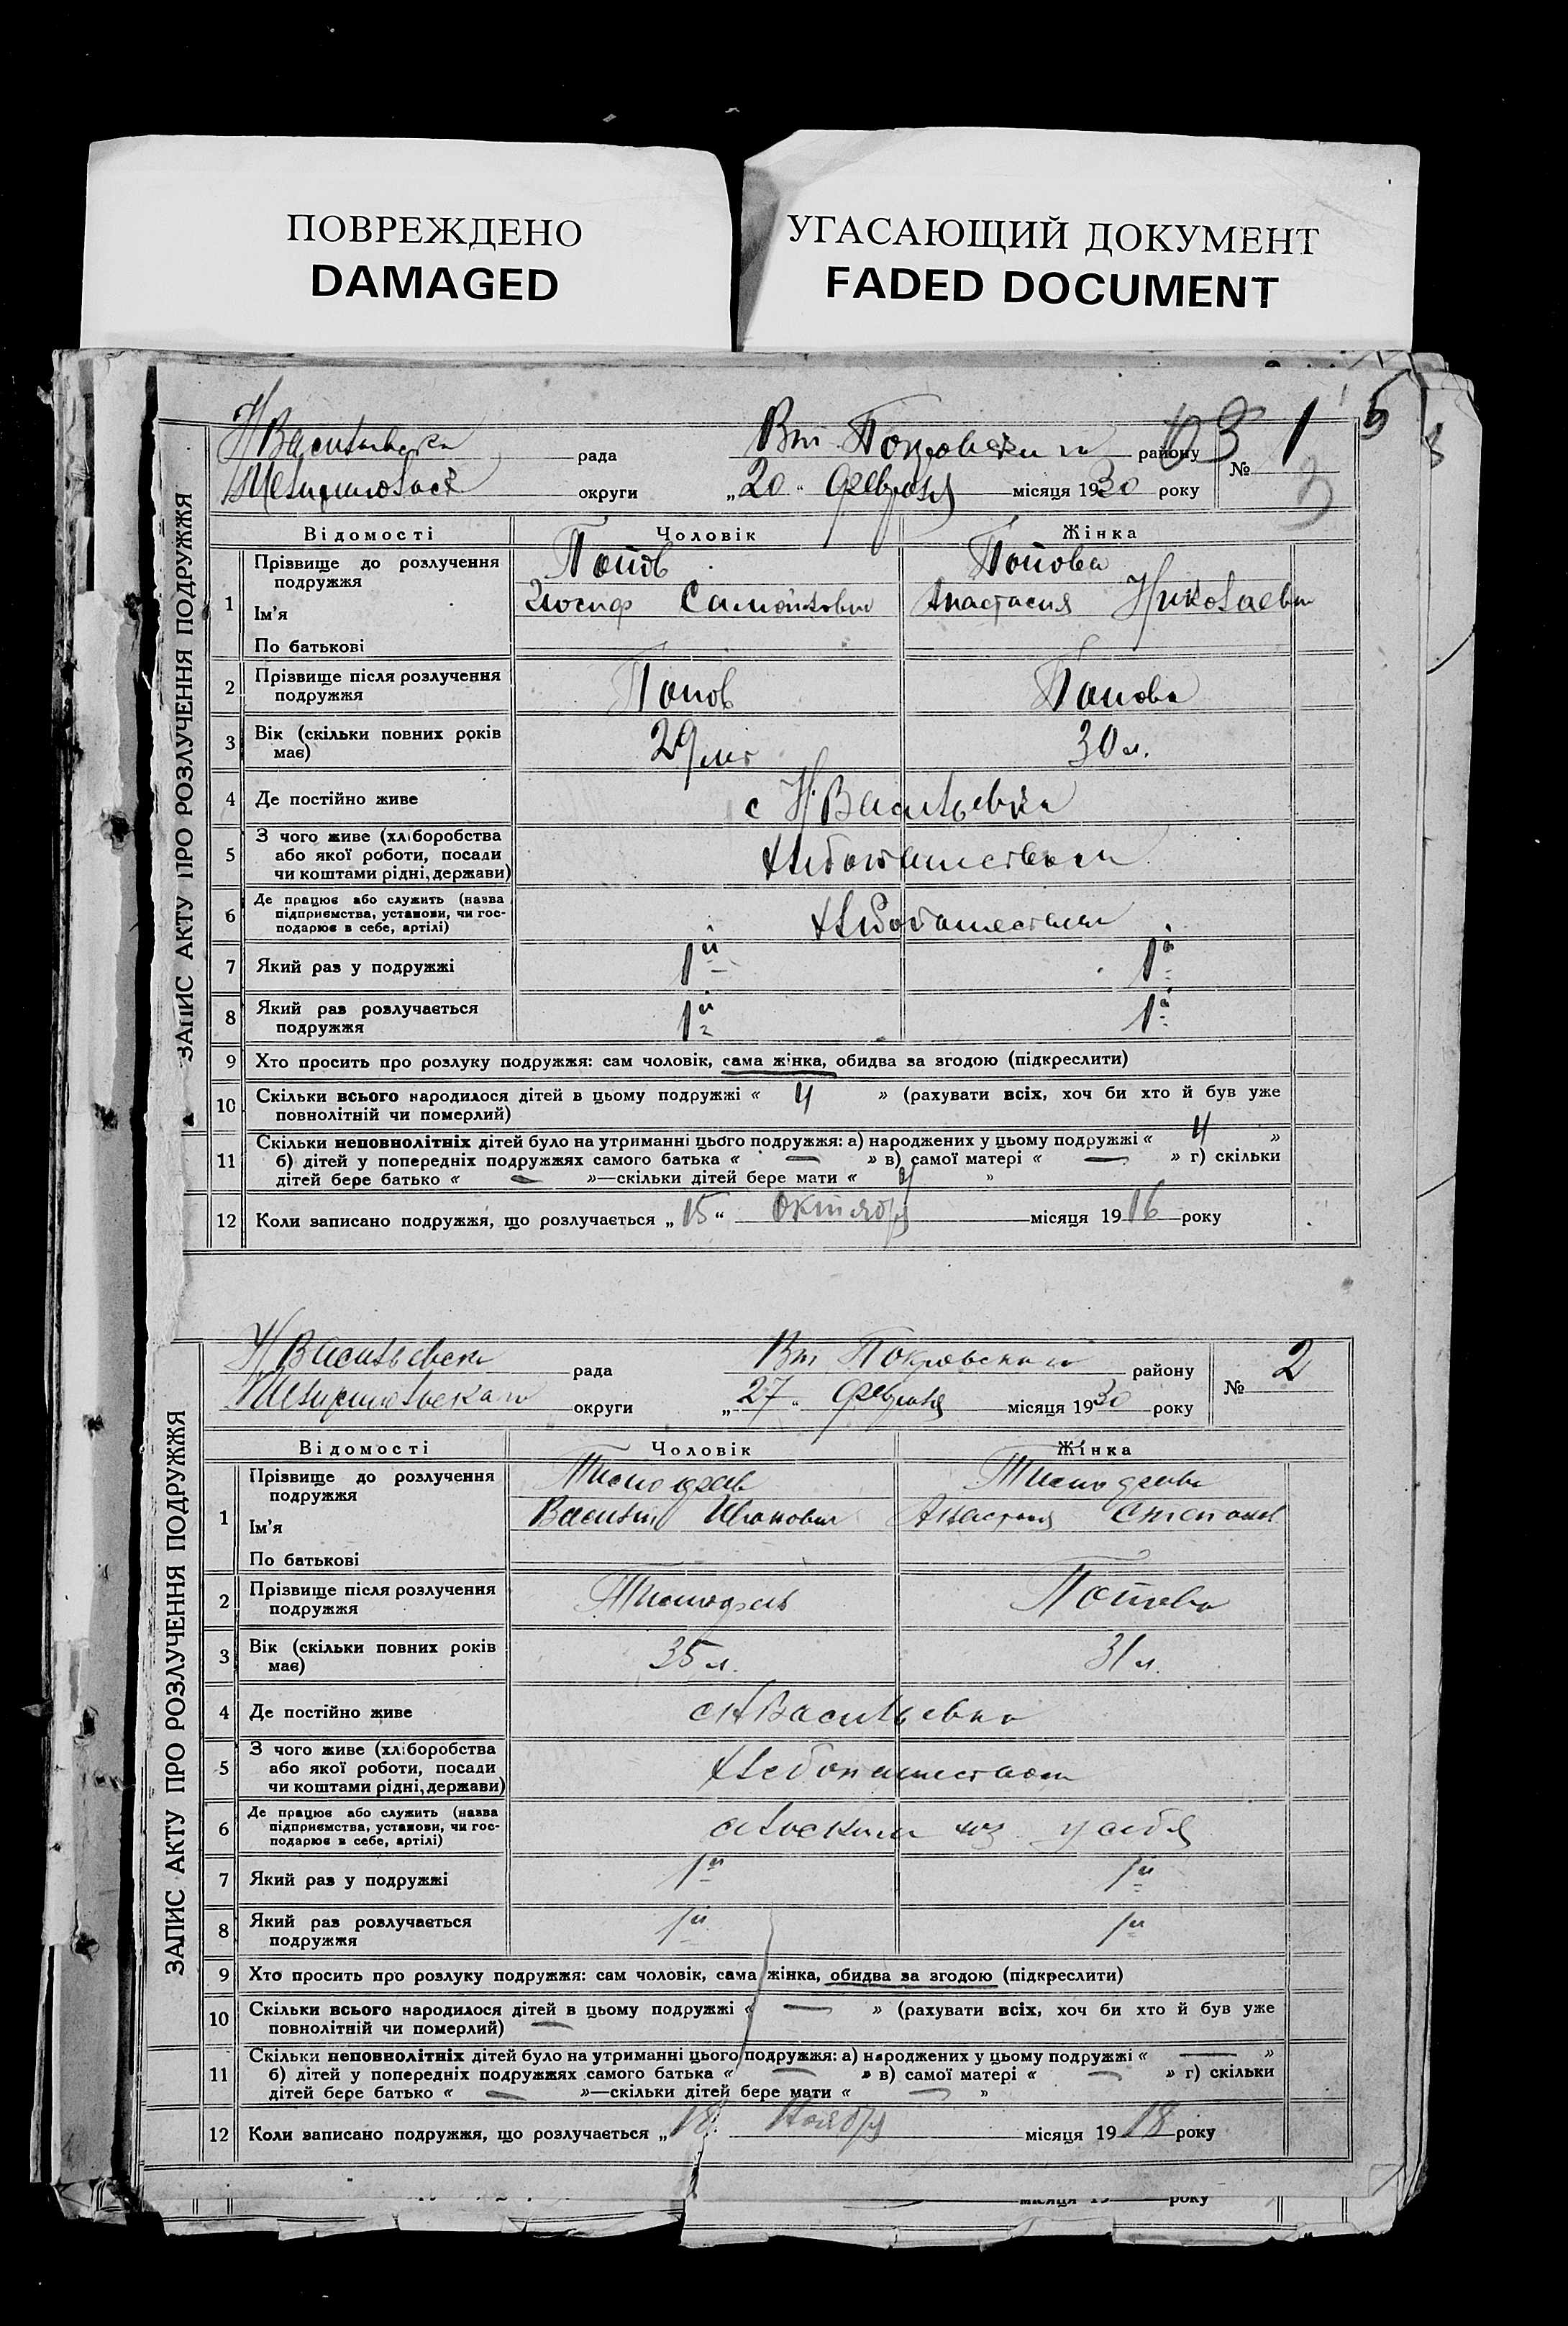 ПОВРЕЖДЕНО
DAMAGED
УГАСАЮЩИЙ ДОКУМЕНТ
FADED DOCUMENT
5
ЗАПИС АКТУ ПРО РОЗЛУЧЕННЯ ПОДРУЖЖЯ
рада Вт Покровского району № 1
округи „20“ февраля місяця 1930 року 3
Відомості Чоловік Жінка
1 Прізвище до розлучення подружжя Попов Попова
Ім'я Иосиф Анастасия Николаевн
По батькові
2 Прізвище після розлучення подружжя Попов Попова
3 Вік (скільки повних років має) 29 лет 30 л.
4 Де постійно живе с Н Васильевка
5 З чого живе (хліборобства або якої роботи, посади чи коштами рідні, держави) хлебопашеством
6 Де працює або служить (назва підприємства, установи, чи господарює в себе, артілі) хлебопашеством
7 Який раз у подружжі 1й 1й
8 Який раз розлучається подружжя 1й 1й
9 Хто просить про розлуку подружжя: сам чоловік, сама жінка, обидва за згодою (підкреслити)
10 Скільки всього народилося дітей в цьому подружжі « 4 » (рахувати всіх, хоч би хто й був уже
повнолітній чи померлий)
11 Скільки неповнолітніх дітей було на утриманні цього подружжя: а) народжених у цьому подружжі « 4 »
б) дітей у попередніх подружжях самого батька « — » в) самої матері « — » г) скільки
дітей бере батько « — »—скільки дітей бере мати « 4 »
12 Коли записано подружжя, що розлучається „15“ октября місяця 1916 року
ЗАПИС АКТУ ПРО РОЗЛУЧЕННЯ ПОДРУЖЖЯ
Н Васильевск рада Вт Покровского району № 2
Мелитопольского округи „27“ февраля місяця 1930 року
Відомості Чоловік Жінка
1 Прізвище до розлучення подружжя
Ім'я Василий Иванович Анастасия Степанов
По батькові
2 Прізвище після розлучення подружжя Попова
3 Вік (скільки повних років має) 35 л. 31 л.
4 Де постійно живе с Н Васильевка
5 З чого живе (хліборобства або якої роботи, посади чи коштами рідні, держави) хлебопашеством
6 Де працює або служить (назва підприємства, установи, чи господарює в себе, артілі) сельским хоз у себя
7 Який раз у подружжі 1й 1й
8 Який раз розлучається подружжя 1й 1й
9 Хто просить про розлуку подружжя: сам чоловік, сама жінка, обидва за згодою (підкреслити)
10 Скільки всього народилося дітей в цьому подружжі « — » (рахувати всіх, хоч би хто й був уже
повнолітній чи померлий)
11 Скільки неповнолітніх дітей було на утриманні цього подружжя: а) народжених у цьому подружжі « — »
б) дітей у попередніх подружжях самого батька « — » в) самої матері « — » г) скільки
дітей бере батько « — »—скільки дітей бере мати « — »
12 Коли записано подружжя, що розлучається „18“ Ноября місяця 1918 року
місяця 19 року